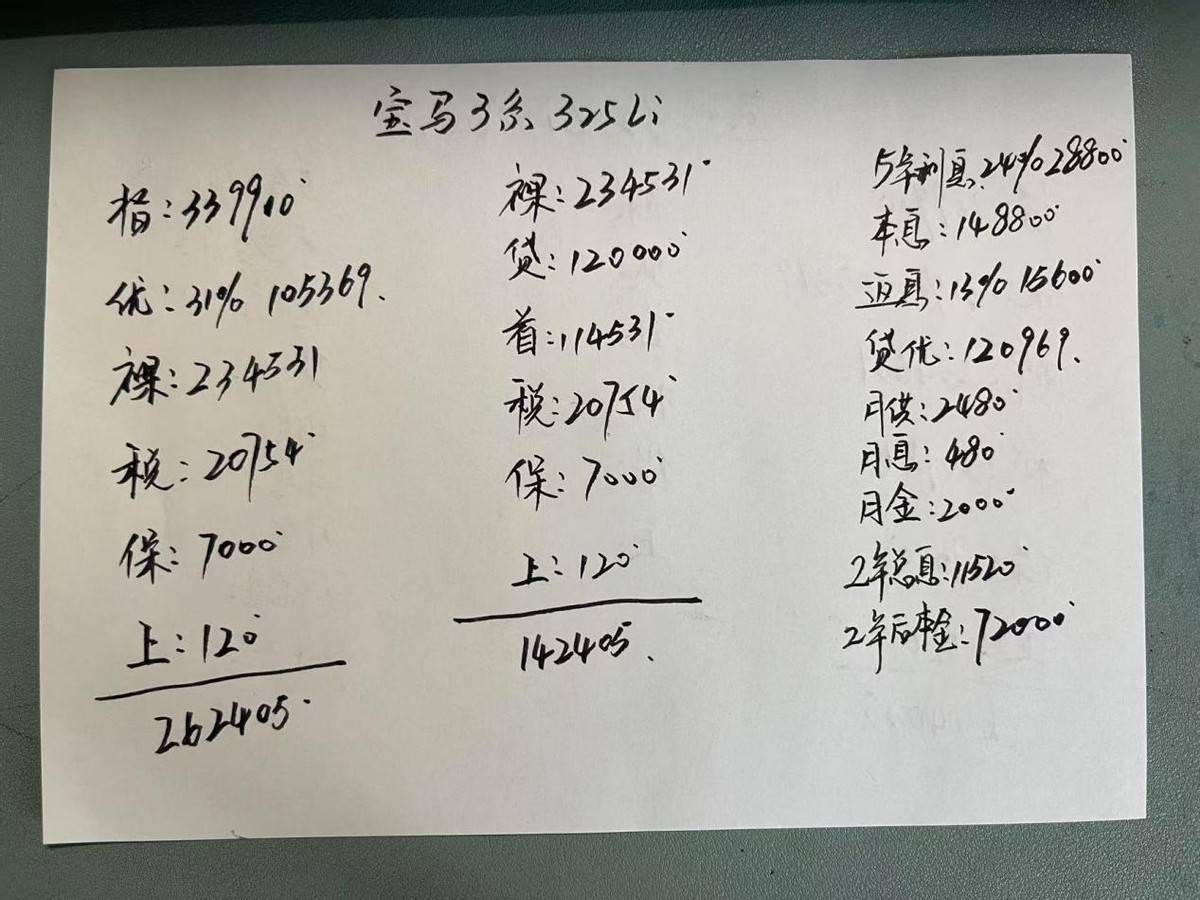 宝马3系 325Li
指:339900
优:31% 105369.
裸:234531
税:20754
保:7000
上:120
262405
裸:234531
贷:120000
首:114531
税:20754
保:7000
上:120
142405.
5年利息:24% 28800
本息:148800
返息:13% 15600
贷优:120969.
月供:2480
月息:480
月金:2000
2年总息:11520
2年后本金:72000